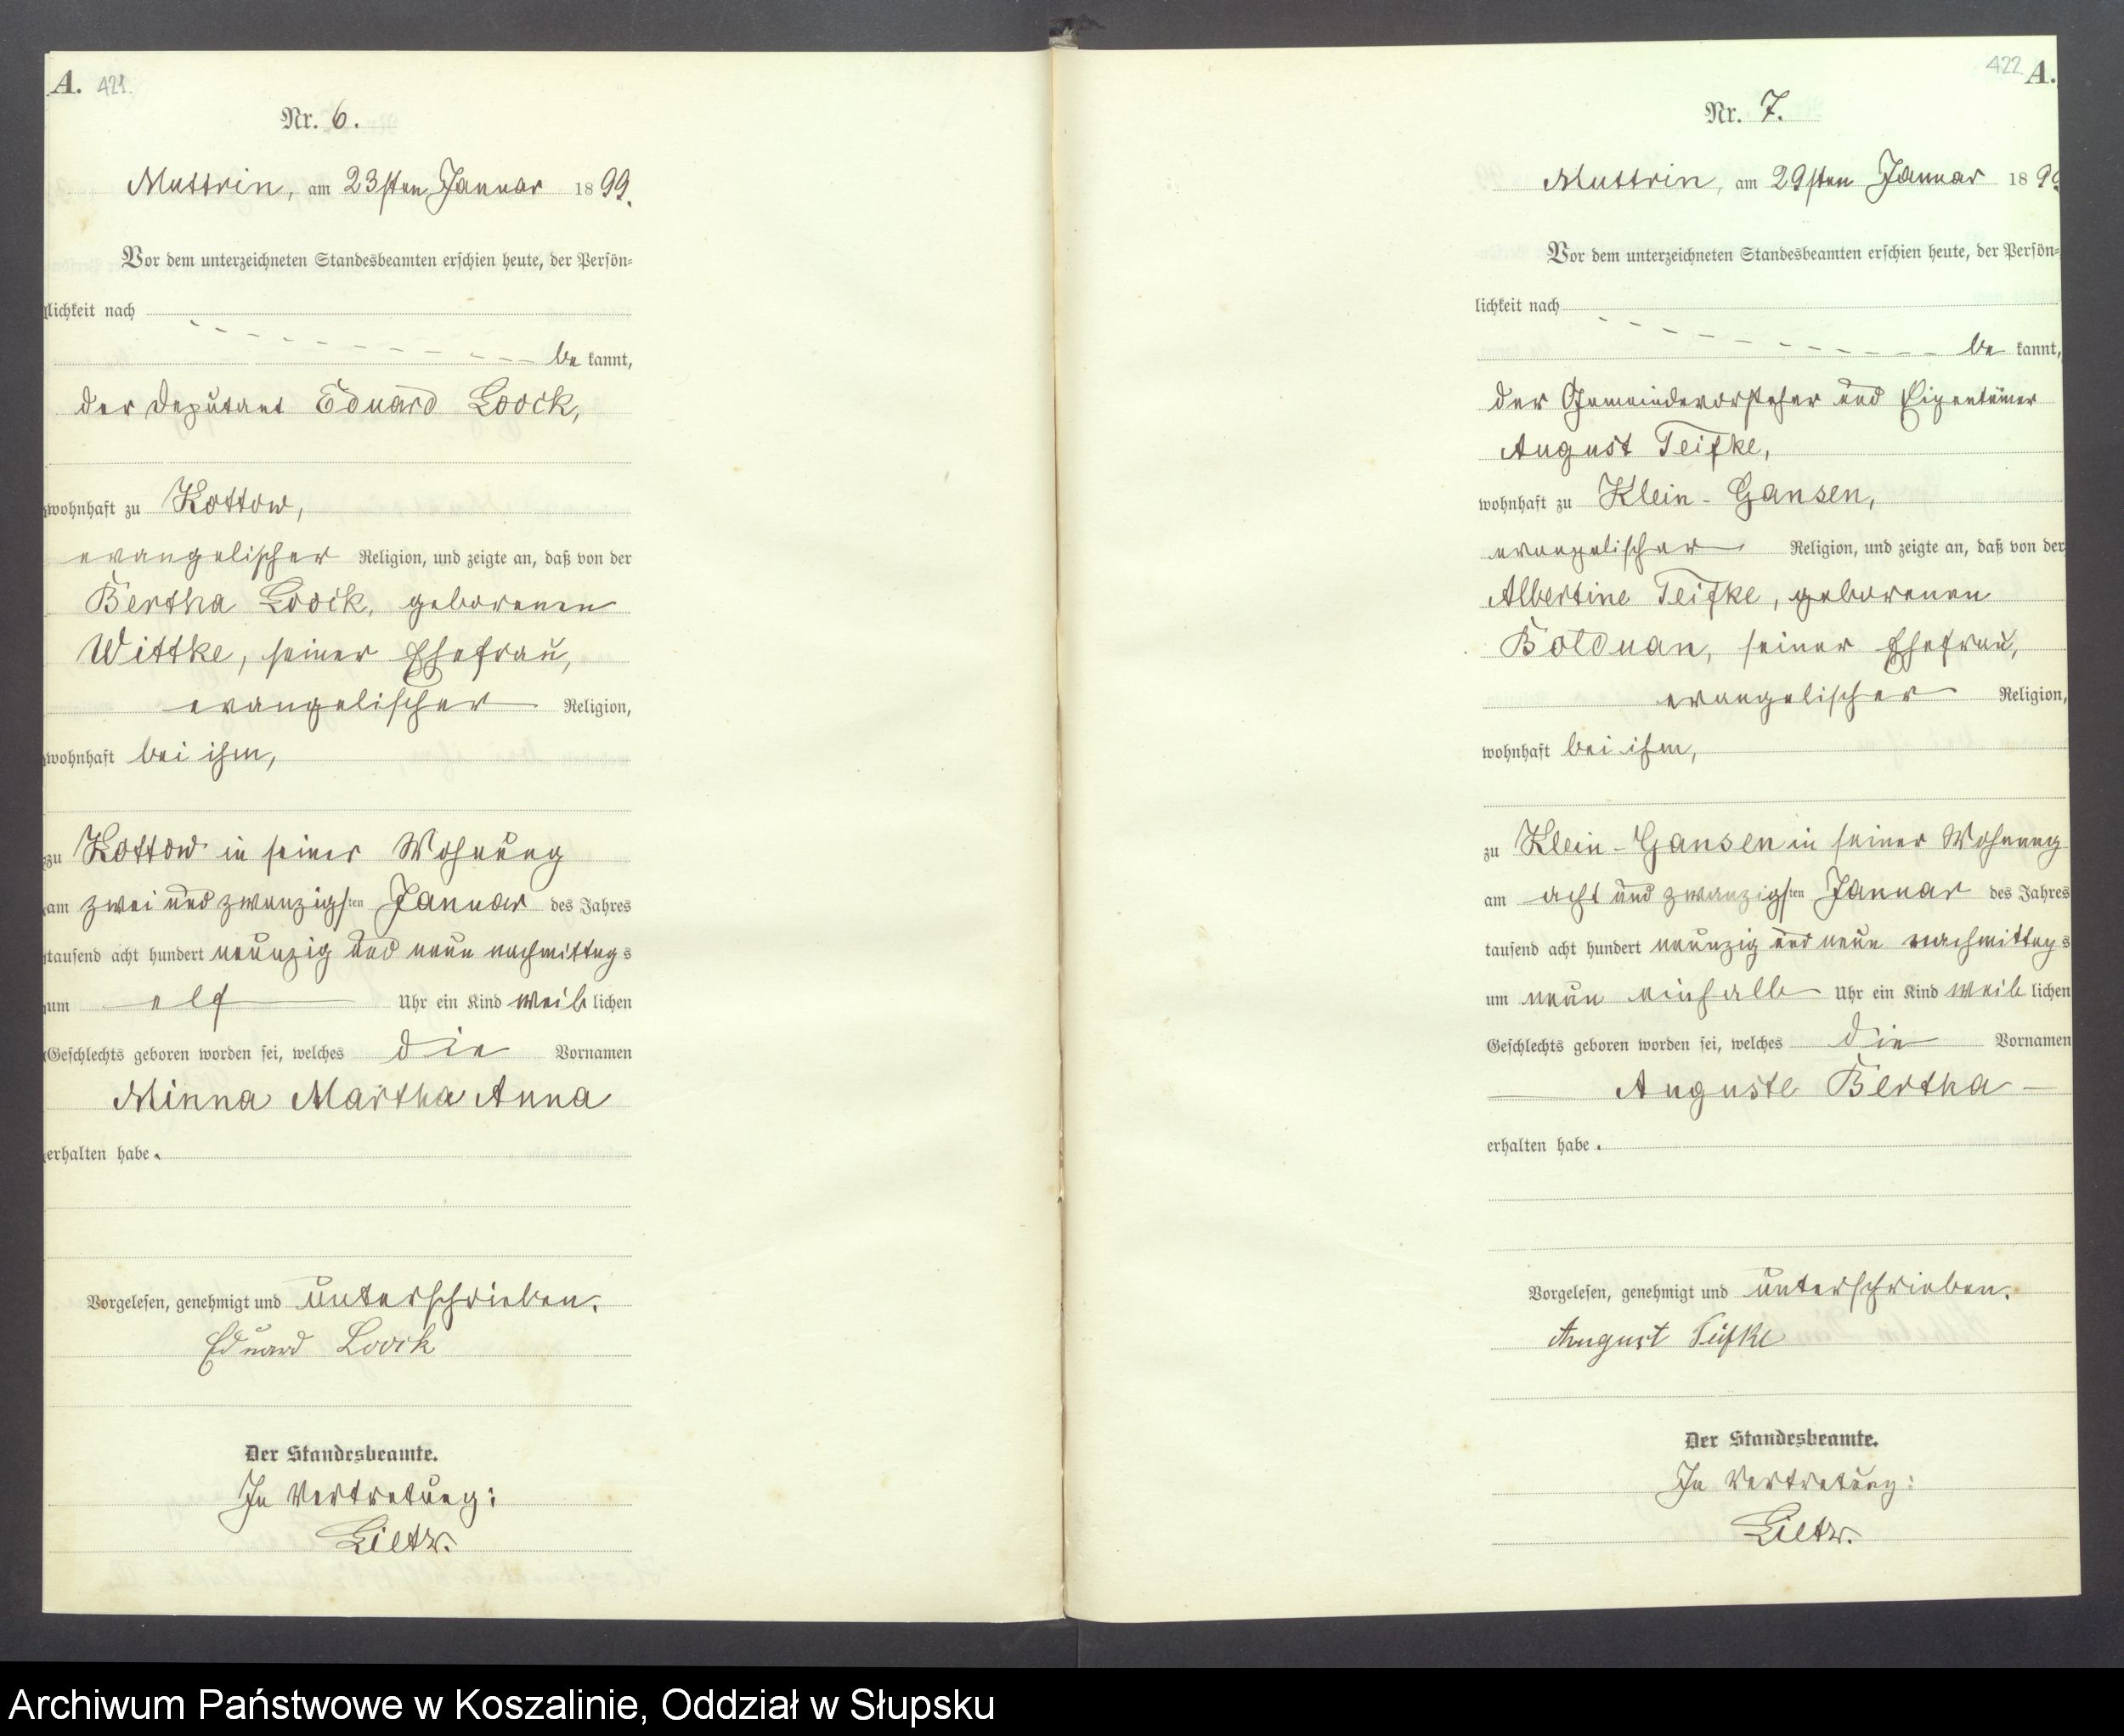 A. 421.
Nr. 6.
Muttrin, am 23sten Januar 1899.
Vor dem unterzeichneten Standesbeamten erschien heute, der Persön-
lichkeit nach
be kannt,
der Deputant Eduard Loock,
wohnhaft zu Kottow,
evangelischer Religion, und zeigte an, daß von der
Bertha Loock, geborenen
Wittke, seiner Ehefrau,
evangelischer Religion,
wohnhaft bei ihm,
zu Kottow in seiner Wohnung
am zwei und zwanzigsten Januar des Jahres
tausend acht hundert neunzig und neun nachmittags
um elf Uhr ein Kind weiblichen
Geschlechts geboren worden sei, welches die Vornamen
Minna Martha Anna
erhalten habe.
Vorgelesen, genehmigt und unterschrieben.
Eduard Loock
Der Standesbeamte.
In Vertretung:
Lietz.
422 A.
Nr. 7.
Muttrin, am 29sten Januar 1899
Vor dem unterzeichneten Standesbeamten erschien heute, der Persön-
lichkeit nach
be kannt,
der Gemeindevorsteher und Eigentümer
August Teifke,
wohnhaft zu Klein-Gansen,
evangelischer Religion, und zeigte an, daß von der
Albertine Teifke, geborenen
Bolduan, seiner Ehefrau,
evangelischer Religion,
wohnhaft bei ihm,
zu Klein-Gansen in seiner Wohnung
am acht und zwanzigsten Januar des Jahres
tausend acht hundert neunzig und neun nachmittags
um neun einhalb Uhr ein Kind weiblichen
Geschlechts geboren worden sei, welches die Vornamen
Auguste Bertha
erhalten habe.
Vorgelesen, genehmigt und unterschrieben.
August Teifke
Der Standesbeamte.
In Vertretung:
Lietz.
Archiwum Państwowe w Koszalinie, Oddział w Słupsku